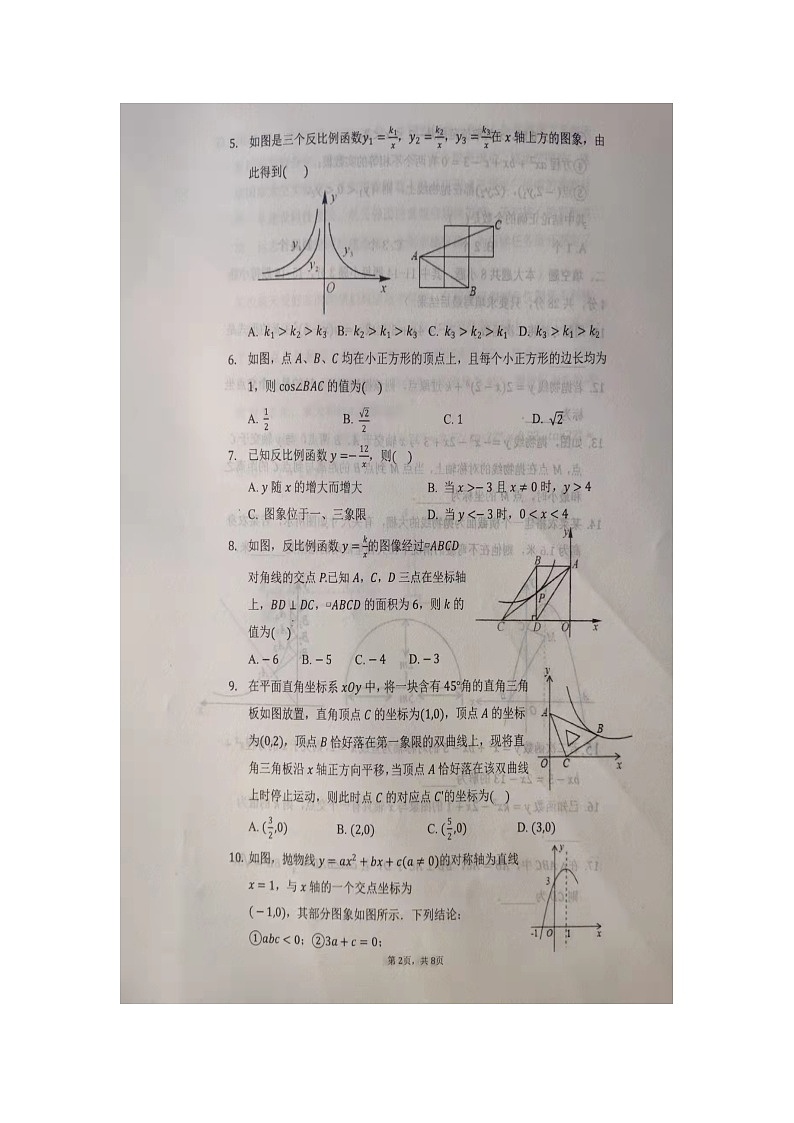 5. 如图是三个反比例函数y₁ = k₁/x，y₂ = k₂/x，y₃ = k₃/x在 x 轴上方的图象，由
此得到( )
y
y₁
y₂
y₃
O
x
A
B
C
A. k₁ > k₂ > k₃ B. k₂ > k₁ > k₃ C. k₃ > k₂ > k₁ D. k₃ > k₁ > k₂
6. 如图，点 A、B、C 均在小正方形的顶点上，且每个小正方形的边长均为
1，则 cos∠BAC 的值为( )
A. 1/2 B. √2/2 C. 1 D. √2
7. 已知反比例函数 y =− 12/x，则( )
A. y 随 x 的增大而增大 B. 当 x >− 3 且 x ≠ 0 时，y > 4
C. 图象位于一、三象限 D. 当 y <− 3 时，0 < x < 4
8. 如图，反比例函数 y = k/x的图像经过▱ABCD
对角线的交点 P.已知 A，C，D 三点在坐标轴
上，BD ⊥ DC，▱ABCD 的面积为 6，则 k 的
值为( )
A. − 6 B. − 5 C. − 4 D. − 3
y
B
A
P
C
D
O
x
9. 在平面直角坐标系 xOy 中，将一块含有 45°角的直角三角
板如图放置，直角顶点 C 的坐标为(1,0)，顶点 A 的坐标
为(0,2)，顶点 B 恰好落在第一象限的双曲线上，现将直
角三角板沿 x 轴正方向平移，当顶点 A 恰好落在该双曲线
上时停止运动，则此时点 C 的对应点 C′的坐标为( )
A. (3/2,0) B. (2,0) C. (5/2,0) D. (3,0)
y
A
B
O
C
x
10. 如图，抛物线 y = ax² + bx + c(a ≠ 0)的对称轴为直线
x = 1，与 x 轴的一个交点坐标为
(− 1,0)，其部分图象如图所示．下列结论：
①abc < 0；②3a + c = 0；
y
3
-1
O
1
x
第 2页，共 8页